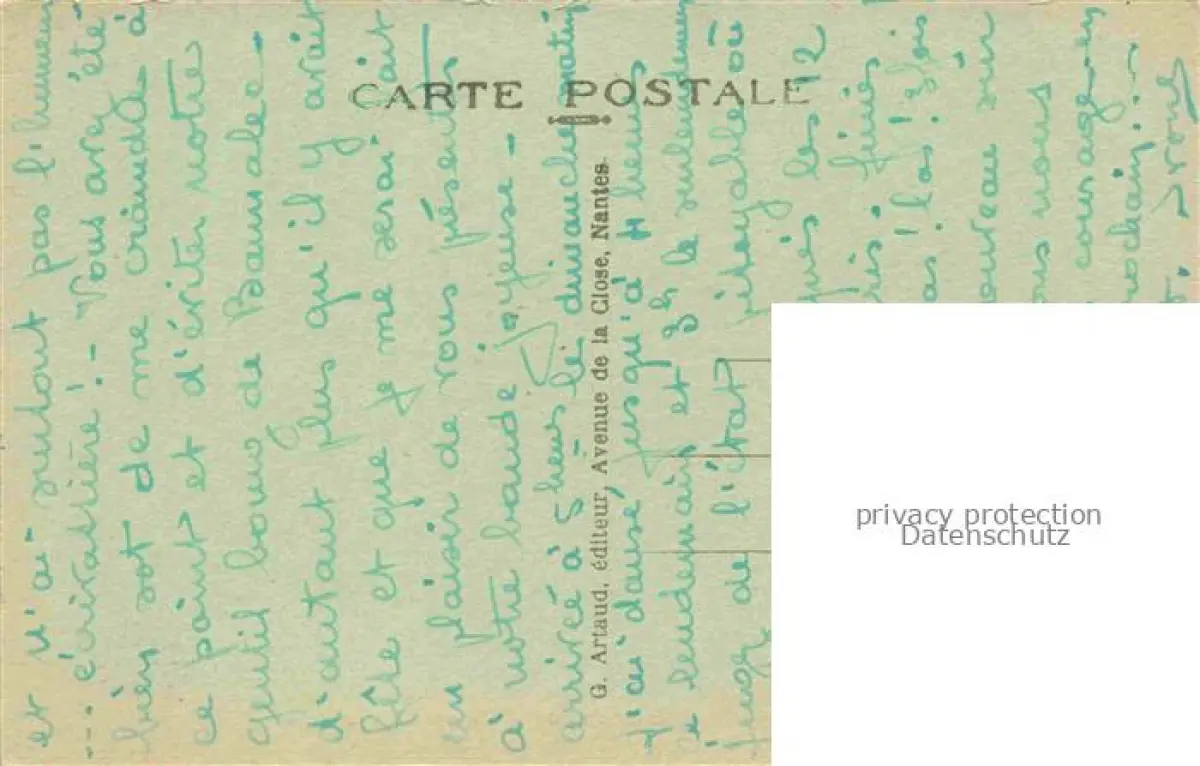 CARTE POSTALE
G. Artaud, éditeur, Avenue de la Close, Nantes.
et n'ai surtout pas l'humeur
... écrivatière ! - Vous avez été
bien sot de me craindre à
ce point et d'éviter notre
gentil bourg de Bannalec -
d'autant plus qu'il y avait
fête et que je me serai fait
un plaisir de vous présenter
à notre bande joyeuse -
arrivée à 5 heures le dimanche matin
j'ai dansé jusqu'à heures
le lendemain et le surlendemain
jugez de l'état pitoyable où
les 12
finies
las !
sur
nous
courage - en
prochain ...
vous
privacy protection
Datenschutz